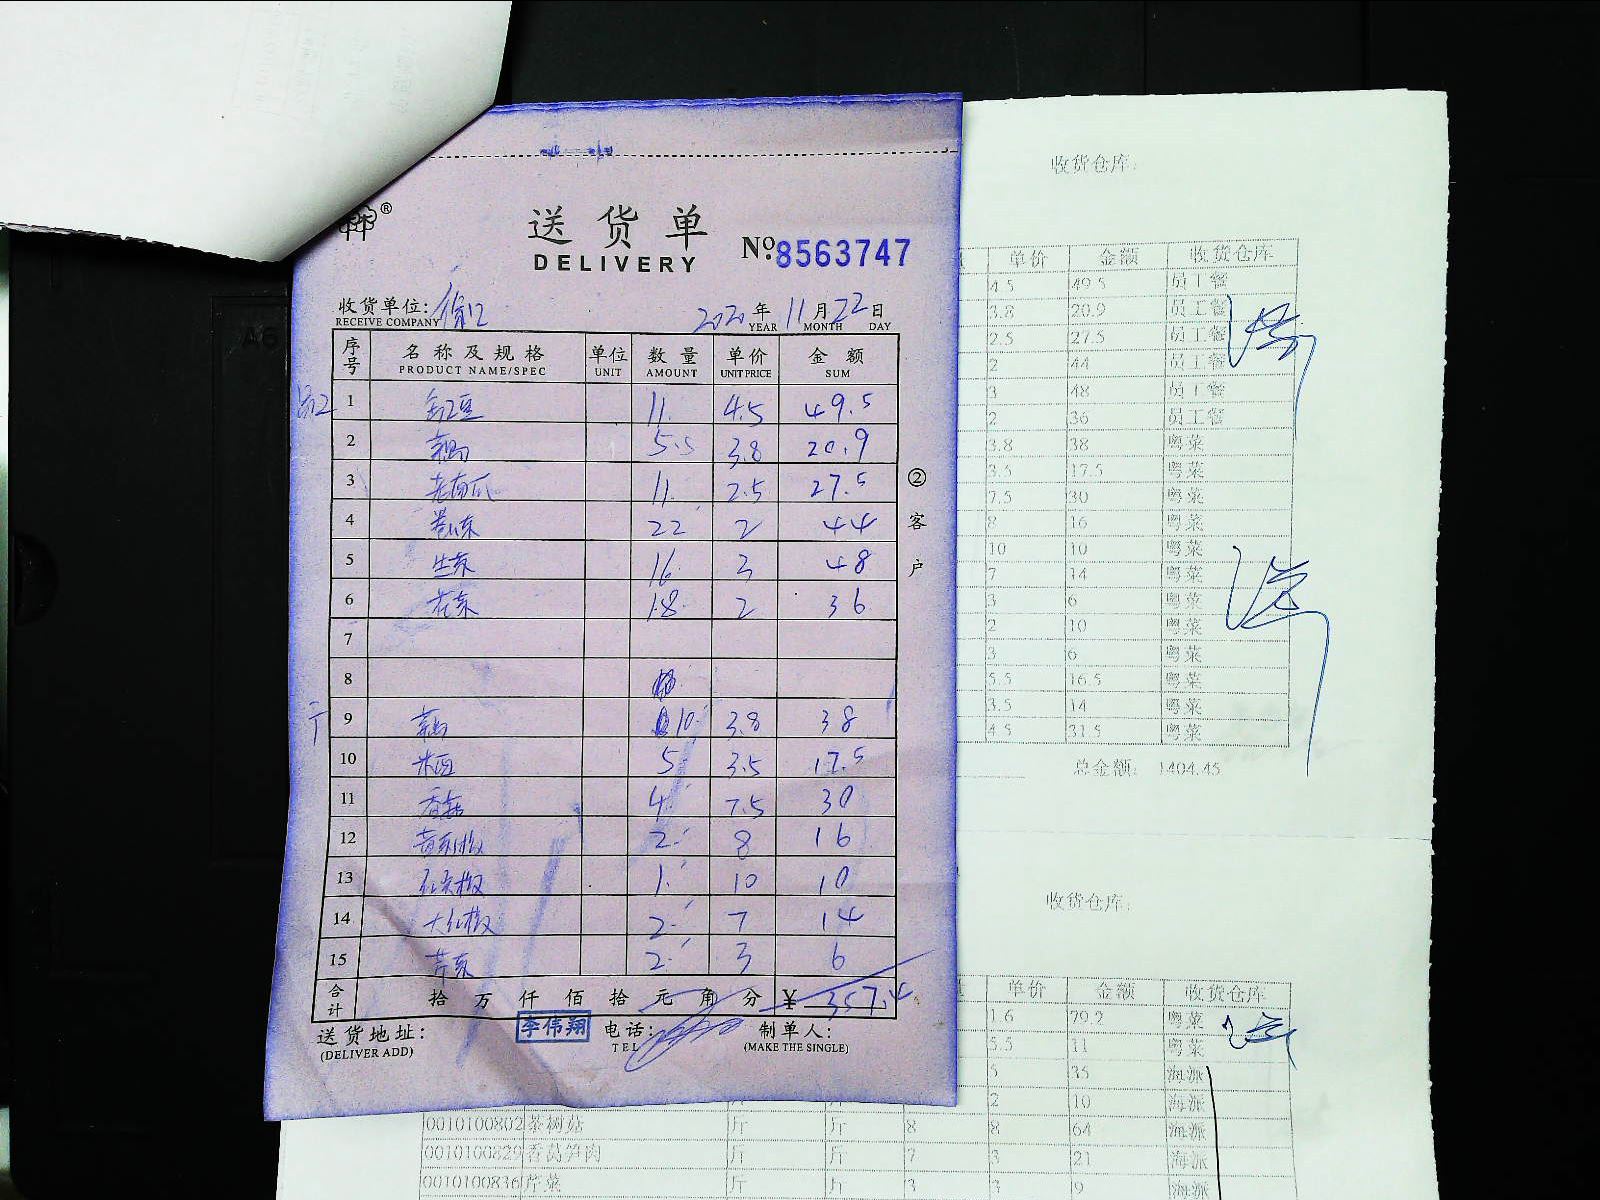 送货单
DELIVERY
№:8563747
收货单位:
RECEIVE COMPANY
2020年11月22日
YEAR MONTH DAY
序号 名称及规格 单位 数量 单价 金额
PRODUCT NAME/SPEC UNIT AMOUNT UNIT PRICE SUM
1 11 4.5 49.5
2 5.5 3.8 20.9
3 老南瓜 11 2.5 27.5
4 22 2 44
5 生菜 16 3 48
6 18 2 36
7
8
9 10 3.8 38
10 5 3.5 17.5
11 香菇 4 7.5 30
12 2 8 16
13 1 10 10
14 大红椒 2 7 14
15 芹菜 2 3 6
合计 拾万仟佰拾元角分 ¥ 357.4
送货地址:
(DELIVER ADD)
李伟翔
电话:
TEL
制单人:
(MAKE THE SINGLE)
②客户
收货仓库:
单价 金额 收货仓库
4.5 49.5 员工餐
3.8 20.9 员工餐
2.5 27.5 员工餐
2 44 员工餐
3 48 员工餐
2 36 员工餐
3.8 38 粤菜
3.5 17.5 粤菜
7.5 30 粤菜
8 16 粤菜
10 10 粤菜
7 14 粤菜
3 6 粤菜
2 10 粤菜
3 6 粤菜
5.5 16.5 粤菜
3.5 14 粤菜
4.5 31.5 粤菜
总金额: 1404.45
收货仓库:
单价 金额 收货仓库
1.6 79.2 粤菜
5.5 11 粤菜
5 35 海派
2 10 海派
0010100802 茶树菇 斤 斤 8 8 64 海派
0010100829 香莴笋肉 斤 斤 7 3 21 海派
0010100836 芹菜 斤 斤 3 3 9 海派